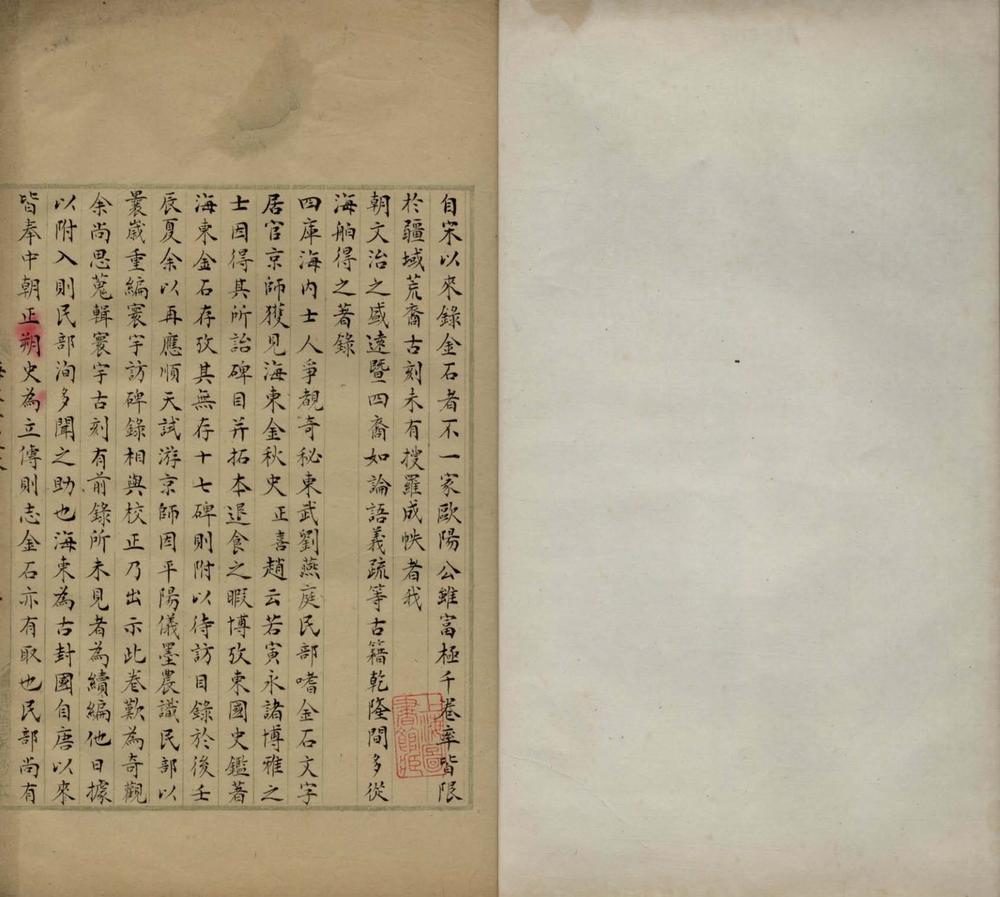 自宋以來錄金石者不一家歐陽公雖富極千卷率皆限
於疆域荒裔古刻未有搜羅成帙者我
朝文治之盛遠暨四裔如論語義疏等古籍乾隆間多從
海舶得之著錄
四庫海內士人爭覩奇秘東武劉燕庭民部嗜金石文字
居官京師獲見海東金秋史正喜趙云若寅永諸博雅之
士因得其所詒碑目并拓本退食之暇博攷東國史鑑著
海東金石存攷其無存十七碑則附以待訪目錄於後壬
辰夏余以再應順天試游京師因平陽儀墨農識民部以
曩歲重編寰宇訪碑錄相與校正乃出示此卷歎為奇觀
余尚思蒐輯寰宇古刻有前錄所未見者為續編他日據
以附入則民部洵多聞之助也海東為古封國自唐以來
皆奉中朝正朔史為立傳則志金石亦有取也民部尚有
上海圖書館藏